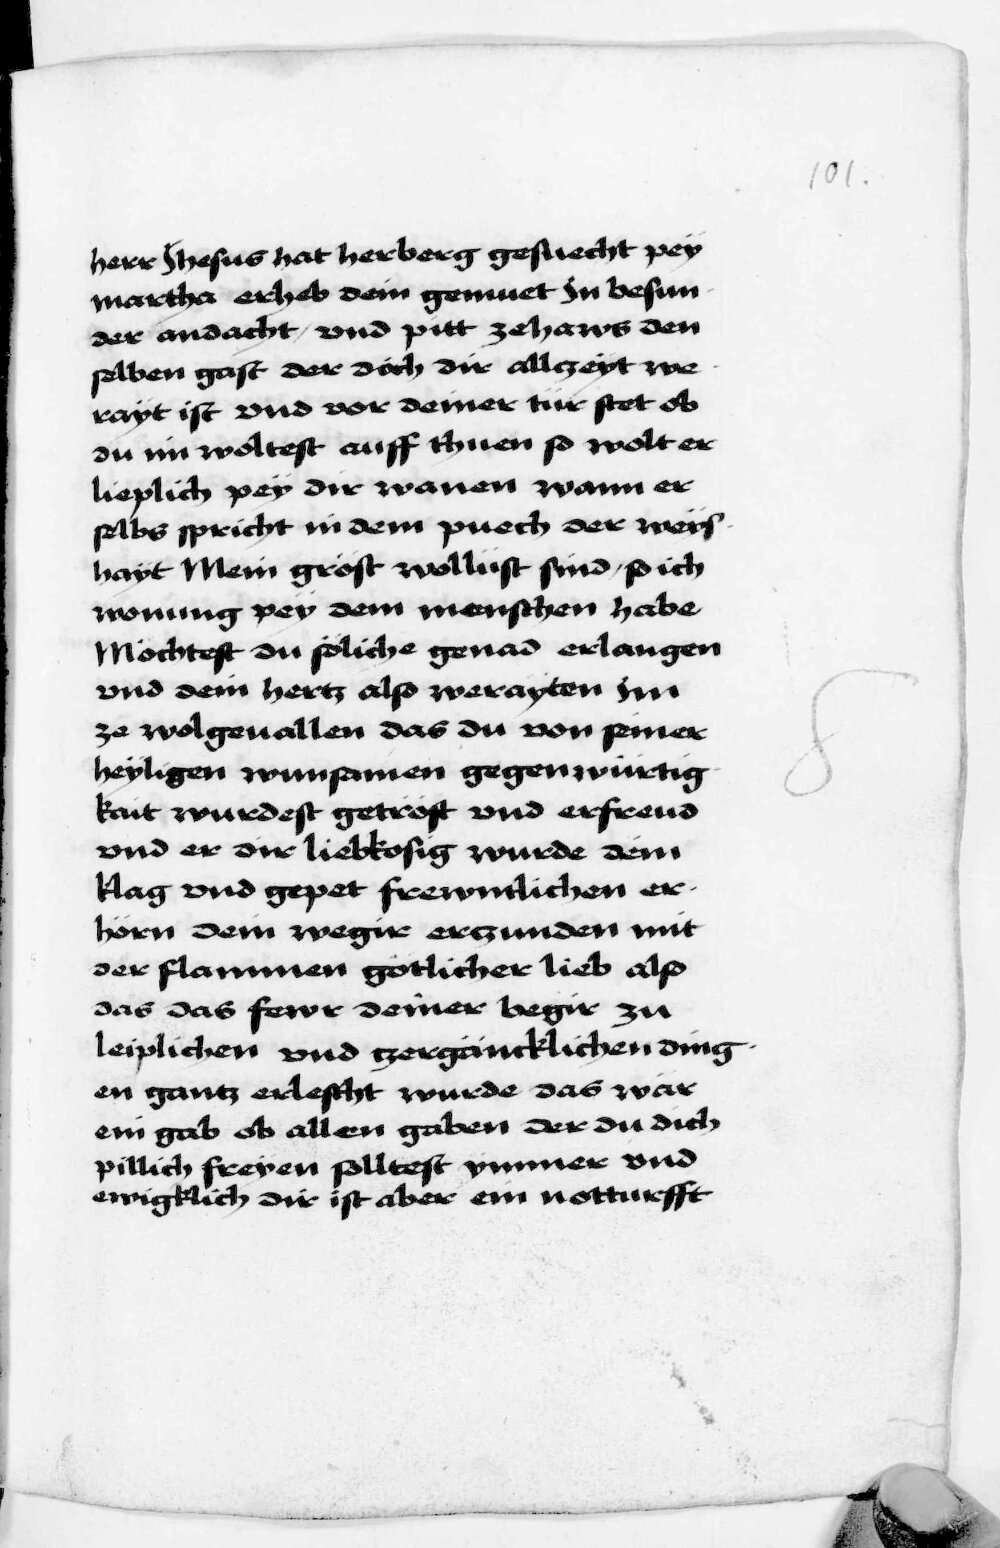 101.
herr Jhesus hat herberg gesuecht pey
martha erheb dein gemuet In besun
der andacht / vnd pitt zehaws den
selben gast der doch dir allczeyt we
rayt ist vnd vor deiner tür stet ob
du im woltest auff thuen so wolt er
lieplich pey dir wanen wann er
selbs spricht in dem puech der weys
hayt Mein gröst wollüst sind / so ich
wonung pey dem menschen habe
Möchtest du söliche genad erlangen
vnd dein hertz also werayten Im
ze wolgeuallen das du von seiner
heyligen wunsamen gegenwürtig
kait wurdest getröst vnd erfreud
vnd er dir liebkosig wurde dein
klag vnd gepet frewntlichen er
hörn dein wegir erczunden mit
der flammen götlicher lieb also
das das fewr deiner begir zu
leiplichen vnd czergäncklichen ding
en gantz erlescht wurde das wär
ein gab ob allen gaben der du dich
pillich freyen solltest ymmer vnd
ewigklich dir ist aber ein notturfft